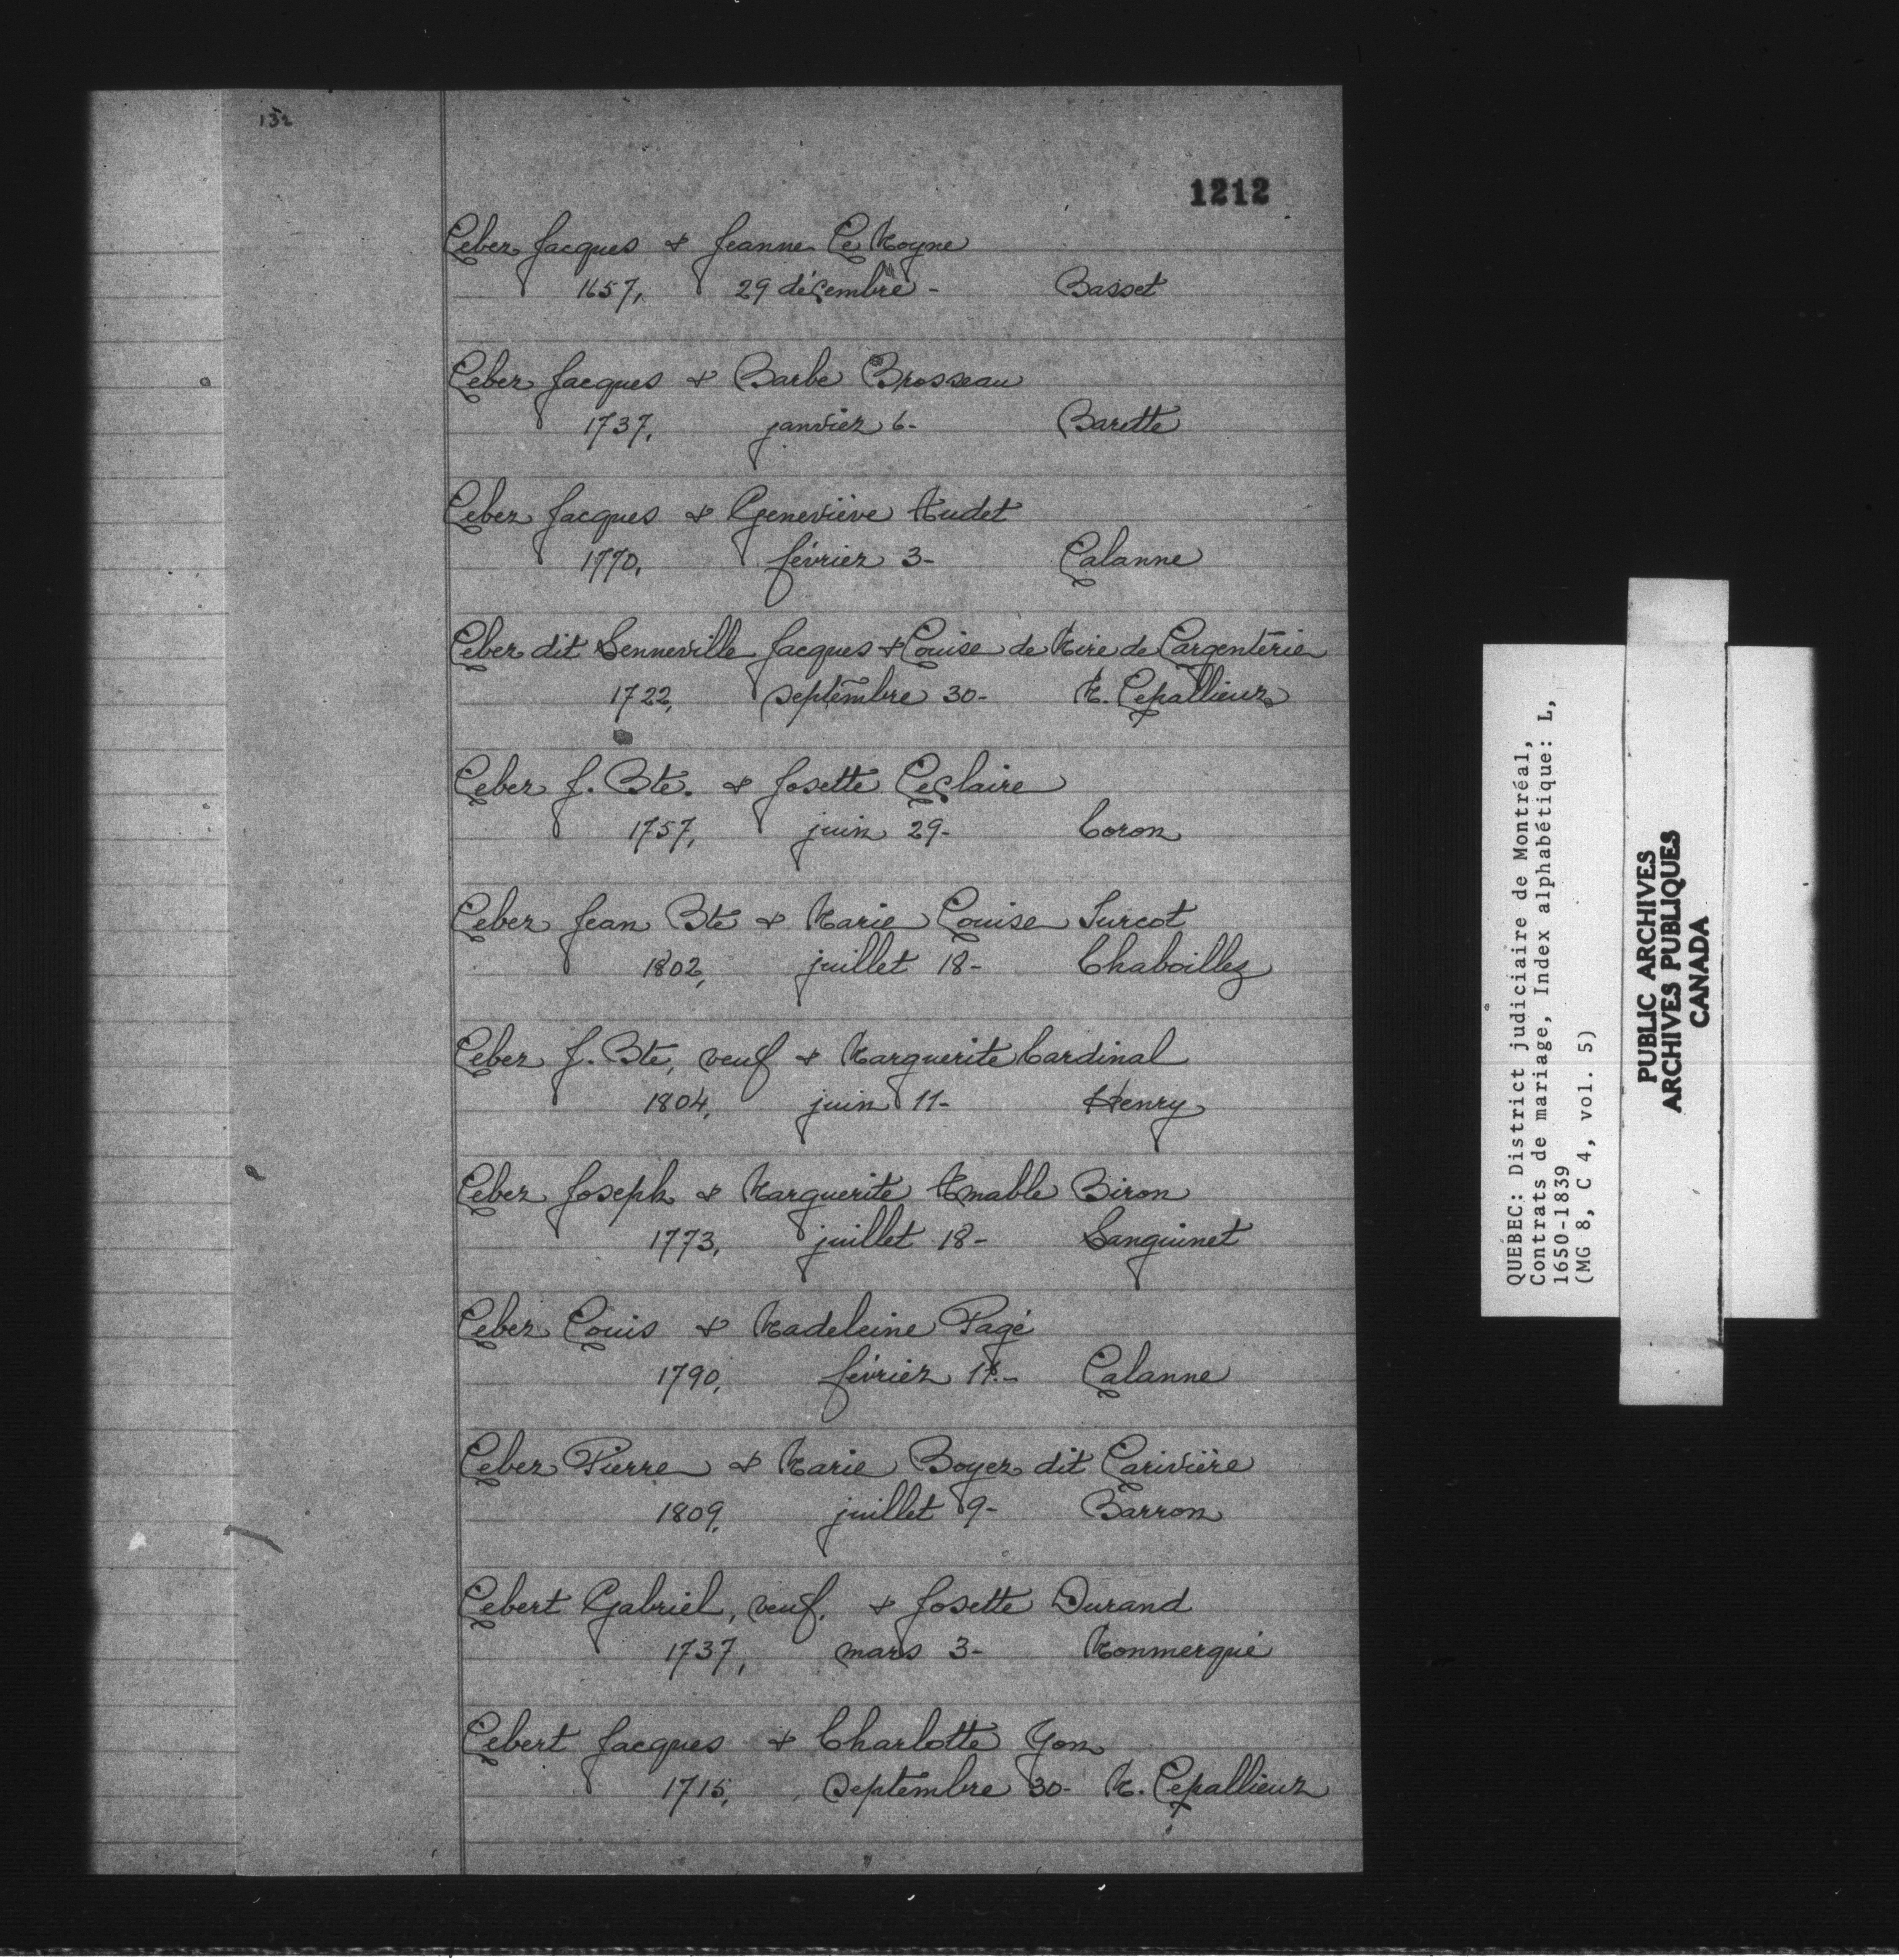 152
1212
Leber Jacques & Jeanne Le Moyne
1657, 29 décembre - Basset
Leber Jacques & Barbe Brosseau
1737, janvier 6- Barette
Leber Jacques & Geneviève Audet
1770, février 3- Lalanne
Leber dit Senneville Jacques & Louise de Mire de Largenterie
1722, septembre 30- M. Lepallieur
Leber J. Bte. & Josette Leclaire
1757, juin 29- Coron
Leber Jean Bte & Marie Louise Turcot
1802, juillet 18- Chaboillez
Leber J. Bte, veuf & Marguerite Cardinal
1804, juin 11- Henry
Leber Joseph & Marguerite Amable Biron
1773, juillet 18- Sanguinet
Leber Louis & Madeleine Pagé
1790, février - Lalanne
Leber Pierre & Marie Boyer dit Larivière
1809, juillet 9- Barron
Lebert Gabriel, veuf, & Josette Durand
1737, mars 3- Monmerqué
Lebert Jacques & Charlotte Yon
1715, septembre 30- M. Lepallieur
QUEBEC: District judiciaire de Montréal,
Contrats de mariage, Index alphabétique: L,
1650-1839
(MG 8, C 4, vol. 5)
PUBLIC ARCHIVES
ARCHIVES PUBLIQUES
CANADA